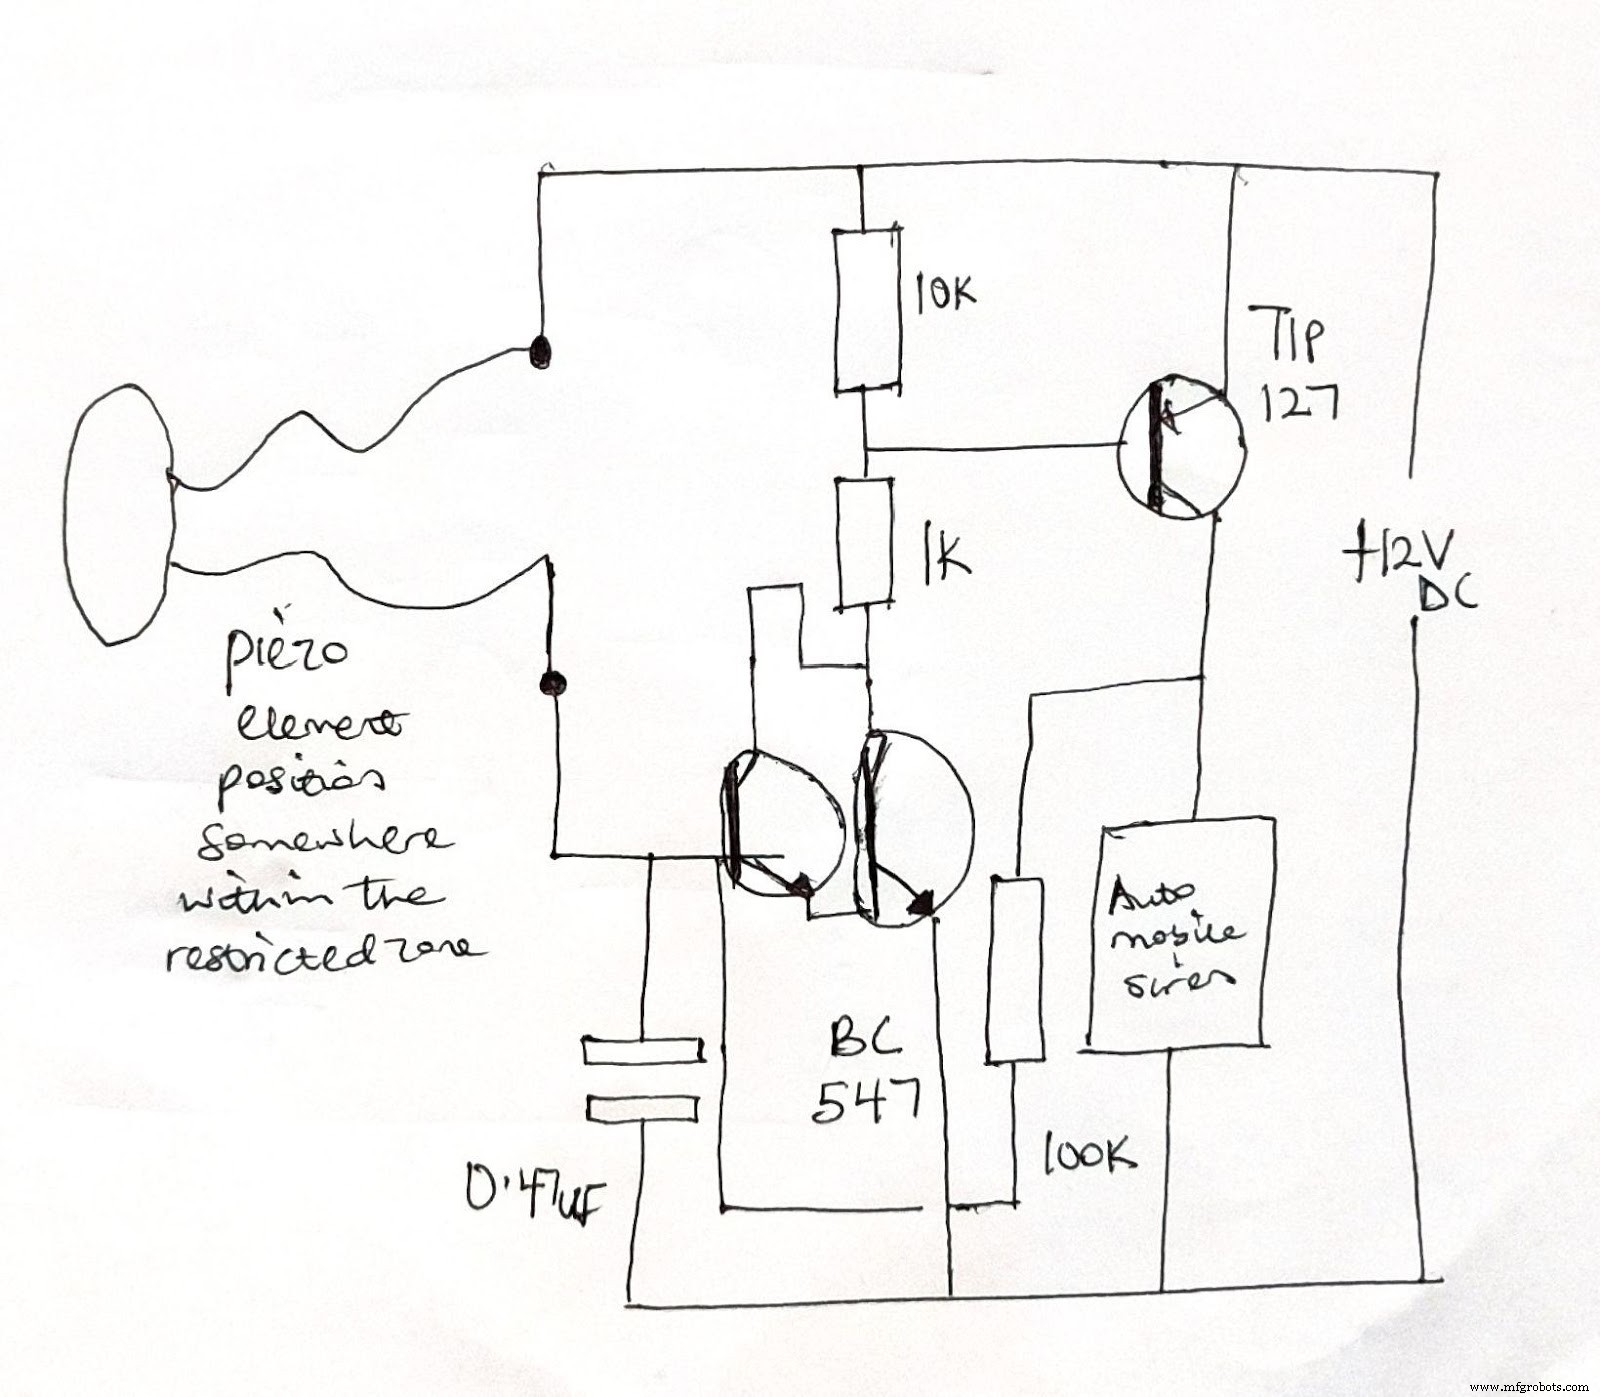 10K
TIP
127
1K
+12V
DC
piezo
element
position
somewhere
within the
restricted zone
Auto
mobile
siren
BC
547
0.47uF
100K
www.mfgrobots.com